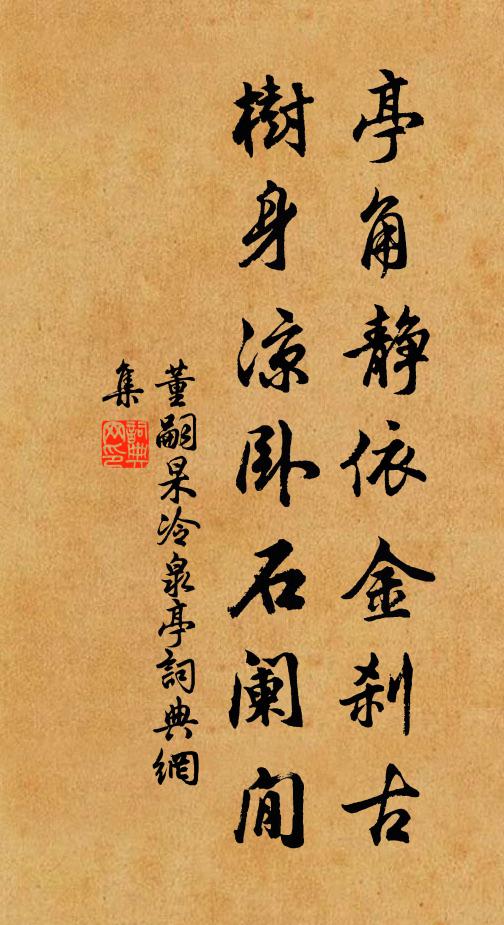 亭角静依金刹古
樹身凉卧石阑閒
董嗣杲冷泉亭詞典網
集
詞典
网印